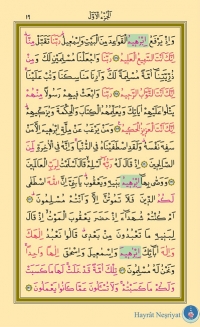 الجزء الأول ١٩
وَاِذْ يَرْفَعُ اِبْرٰهٖيمُ الْقَوَاعِدَ مِنَ الْبَيْتِ وَاِسْمٰعٖيلُ رَبَّنَا تَقَبَّلْ مِنَّا
اِنَّكَ اَنْتَ السَّمٖيعُ الْعَلٖيمُ رَبَّنَا وَاجْعَلْنَا مُسْلِمَيْنِ لَكَ وَمِنْ
ذُرِّيَّتِنَا اُمَّةً مُسْلِمَةً لَكَ وَاَرِنَا مَنَاسِكَنَا وَتُبْ عَلَيْنَا
اِنَّكَ اَنْتَ التَّوَّابُ الرَّحٖيمُ رَبَّنَا وَابْعَثْ فٖيهِمْ رَسُولًا مِنْهُمْ
يَتْلُوا عَلَيْهِمْ اٰيَاتِكَ وَيُعَلِّمُهُمُ الْكِتَابَ وَالْحِكْمَةَ وَيُزَكّٖيهِمْ
اِنَّكَ اَنْتَ الْعَزٖيزُ الْحَكٖيمُ وَمَنْ يَرْغَبُ عَنْ مِلَّةِ اِبْرٰهٖيمَ اِلَّا مَنْ
سَفِهَ نَفْسَهُ وَلَقَدِ اصْطَفَيْنَاهُ فِى الدُّنْيَا وَاِنَّهُ فِى الْاٰخِرَةِ لَمِنَ
الصَّالِحٖينَ اِذْ قَالَ لَهُ رَبُّهُ اَسْلِمْ قَالَ اَسْلَمْتُ لِرَبِّ الْعَالَمٖينَ
وَوَصّٰى بِهَا اِبْرٰهٖيمُ بَنٖيهِ وَيَعْقُوبُ يَا بَنِىَّ اِنَّ اللّٰهَ اصْطَفٰى
لَكُمُ الدّٖينَ فَلَا تَمُوتُنَّ اِلَّا وَاَنْتُمْ مُسْلِمُونَ
اَمْ كُنْتُمْ شُهَدَاءَ اِذْ حَضَرَ يَعْقُوبَ الْمَوْتُ اِذْ قَالَ
لِبَنٖيهِ مَا تَعْبُدُونَ مِنْ بَعْدٖى قَالُوا نَعْبُدُ اِلٰهَكَ
وَاِلٰهَ اٰبَائِكَ اِبْرٰهٖيمَ وَاِسْمٰعٖيلَ وَاِسْحٰقَ اِلٰهًا وَاحِدًا
وَنَحْنُ لَهُ مُسْلِمُونَ تِلْكَ اُمَّةٌ قَدْ خَلَتْ لَهَا مَا كَسَبَتْ
وَلَكُمْ مَا كَسَبْتُمْ وَلَا تُسْئَلُونَ عَمَّا كَانُوا يَعْمَلُونَ
Hayrât Neşriyat